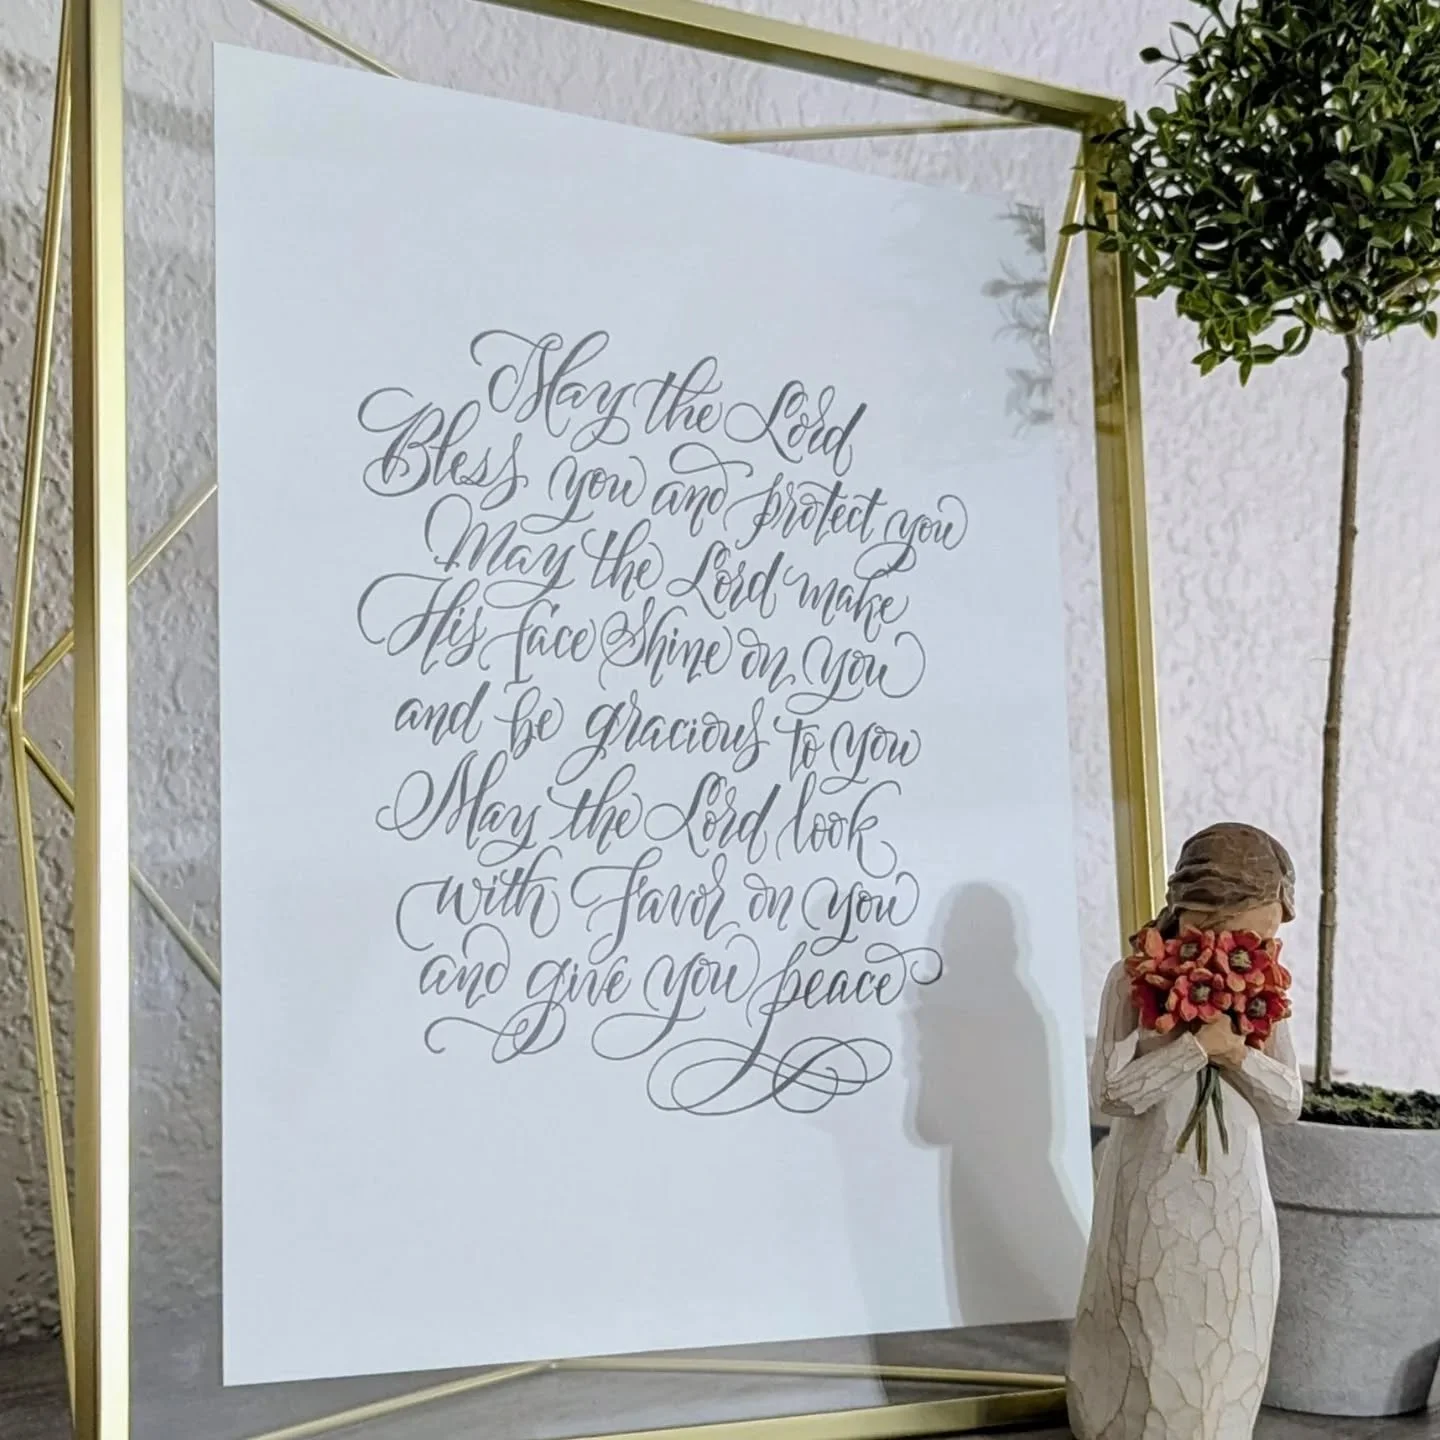 May the Lord
Bless you and protect you
May the Lord make
His face Shine on you
and be gracious to you
May the Lord look
with Favor on you
and give you peace